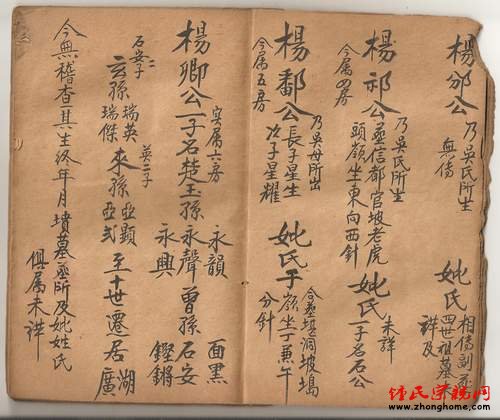 楊邠公
乃吳氏所生
無傳
妣氏
相傳副
四世祖墓
詳及
楊祁公
乃吳氏所生
今属四房
葬信都官坡老虎
頭嶺坐東向西針
妣氏
未詳
一子名石公
楊鄱公
乃吳母所出
今属五房
長子星生
次子星耀
妣氏
今葬塭洞坡塢
嶺坐丁兼午
分針
楊卿公
寔属六房
一子名楚玉孫
永韻
永聲
永興
曾孫
面黑
石安
鏗鏘
石安子
玄孫
瑞英
瑞傑
英二子
來孫
亞顯
亞弍
至十世遷居湖
廣
今無稽查其生終年月墳墓葬所及妣姓氏
俱属未詳
钟氏宗親网
www.zhonghome.com